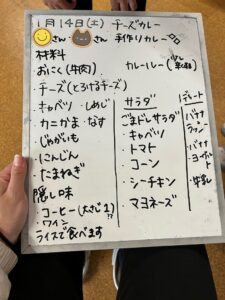 1月14日(土) チーズカレー
さん さん 手作りカレー
材料
おにく(牛肉)
カレールー
・チーズ(とろけるチーズ)
キャベツ ・しめじ
カニかま ・なす
じゃがいも
にんじん
たまねぎ
隠し味
・コーヒー(大さじ1
・ワイン
ライスで食べます
サラダ
ごまドレサラダ
・キャベツ
・トマト
・コーン
・シーチキン
・マヨネーズ
デザート
バナナ
バナナ
ヨーグルト
・牛乳